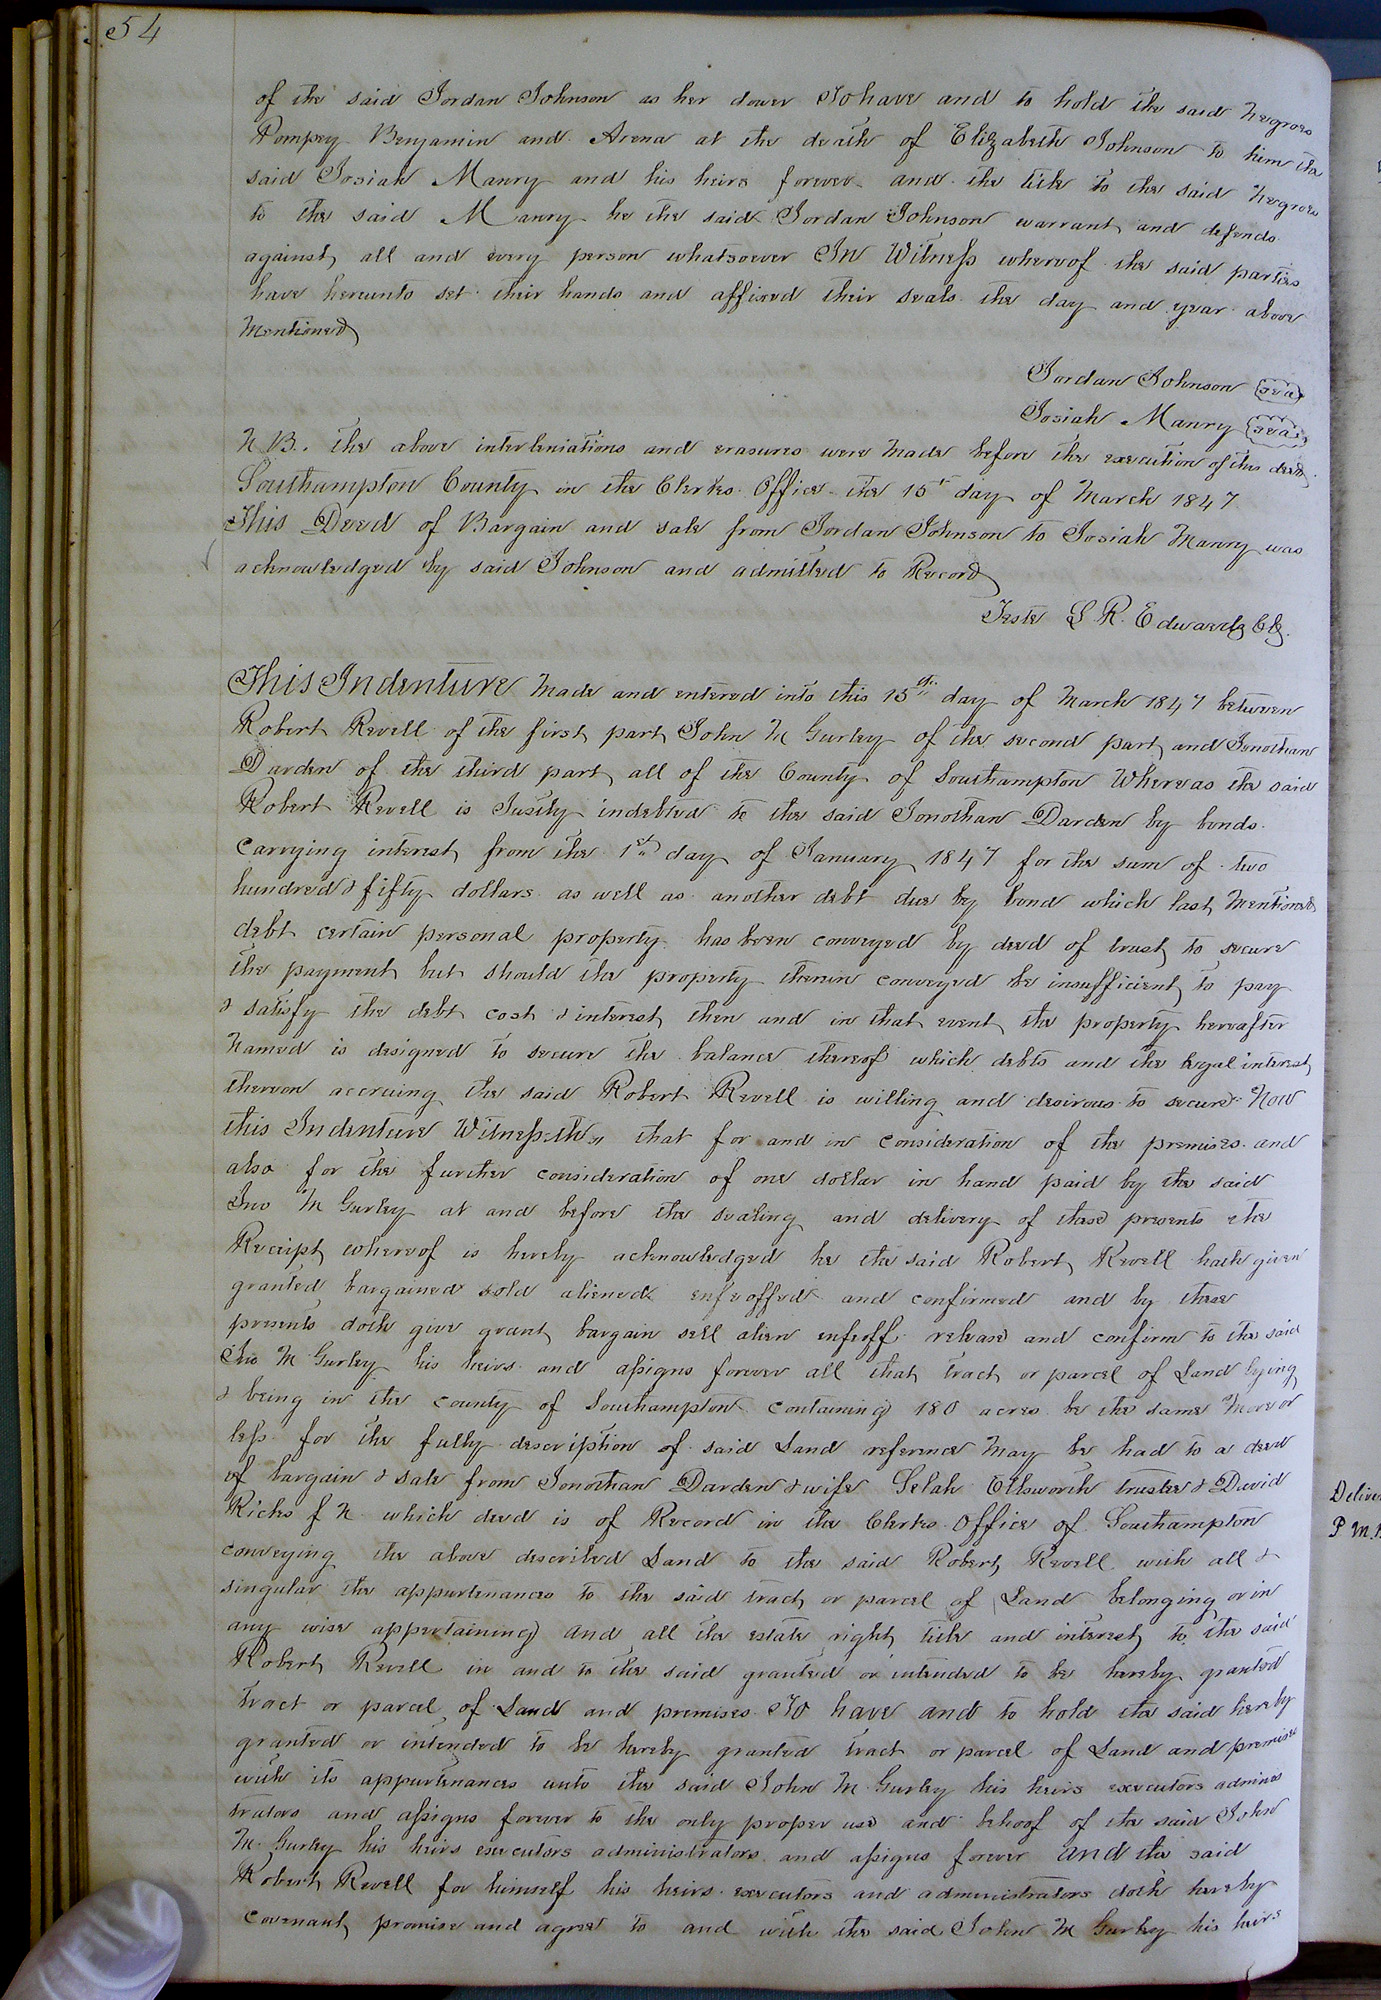 54
of the said Jordan Johnson as her dower To have and to hold the said Negroes
Pompey Benjamin and Arena at the death of Elizabeth Johnson to him the
said Josiah Manry and his heirs forever and the title to the said Negroes
to the said Manry he the said Jordan Johnson warrant and defends
against all and every person whatsoever In Witness whereof the said parties
have hereunto set their hands and affixed their seals the day and year above
Mentioned
Jordan Johnson seal
Josiah Manry seal
N B. the above interleniations and erasures were made before the execution of this deed.
Southampton County in the Clerks Office the 15th day of March 1847
This Deed of Bargain and sale from Jordan Johnson to Josiah Manry was
acknowledged by said Johnson and admitted to Record
Teste L R. Edwards Clk.
This Indenture Made and entered into this 15th day of March 1847 between
Robert Revell of the first part John M Gurley of the second part and Jonothan
Darden of the third part all of the County of Southampton Whereas the said
Robert Revell is Justly indebted to the said Jonothan Darden by bonds
carrying interest from the 1st day of January 1847 for the sum of two
hundred & fifty dollars as well as another debt due by bond which last Mentioned
debt certain personal property has been conveyed by deed of trust to secure
the payment but should the property therein conveyed be insufficient to pay
& satisfy the debt cost & interest then and in that event the property hereafter
Named is designed to secure the balance thereof which debts and the legal interest
thereon accruing the said Robert Revell is willing and desirous to secure Now
this Indenture Witnesseth that for and in consideration of the premises and
also for the further consideration of one dollar in hand paid by the said
Jno M Gurley at and before the sealing and delivery of these presents the
Receipt whereof is hereby acknowledged he the said Robert Revell hath given
granted bargained sold aliened enfeoffed and confirmed and by these
presents doth give grant bargain sell alien enfeoff release and confirm to the said
Jno M Gurley his heirs and assigns forever all that tract or parcel of Land lying
& being in the county of Southampton containing 180 acres be the same More or
less for the fully description of said Land reference May be had to a deed
of bargain & sale from Jonothan Darden & wife Selah Ellsworth trustee & David
Ricks f N which deed is of Record in the Clerks Office of Southampton
conveying the above described Land to the said Robert Revell with all &
singular the appurtenances to the said tract or parcel of Land belonging or in
any wise appertaining and all the estate right title and interest to the said
Robert Revell in and to the said granted or intended to be hereby granted
tract or parcel of Land and premises To have and to hold the said hereby
granted or intended to be hereby granted tract or parcel of Land and premises
with its appurtenances unto the said John M Gurley his heirs executors adminis
trators and assigns forever to the only proper use and behoof of the said John
M. Gurley his heirs executors administrators and assigns forever and the said
Robert Revell for himself his heirs executors and administrators doth hereby
covenant promise and agree to and with the said John M Gurley his heirs